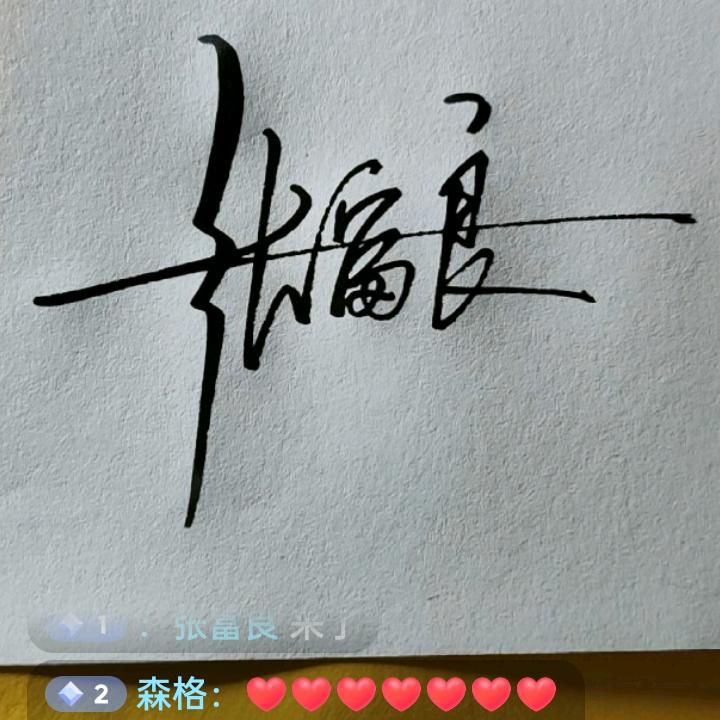 张富良
1 : 张富良 来了
2 森格: ❤️❤️❤️❤️❤️❤️❤️